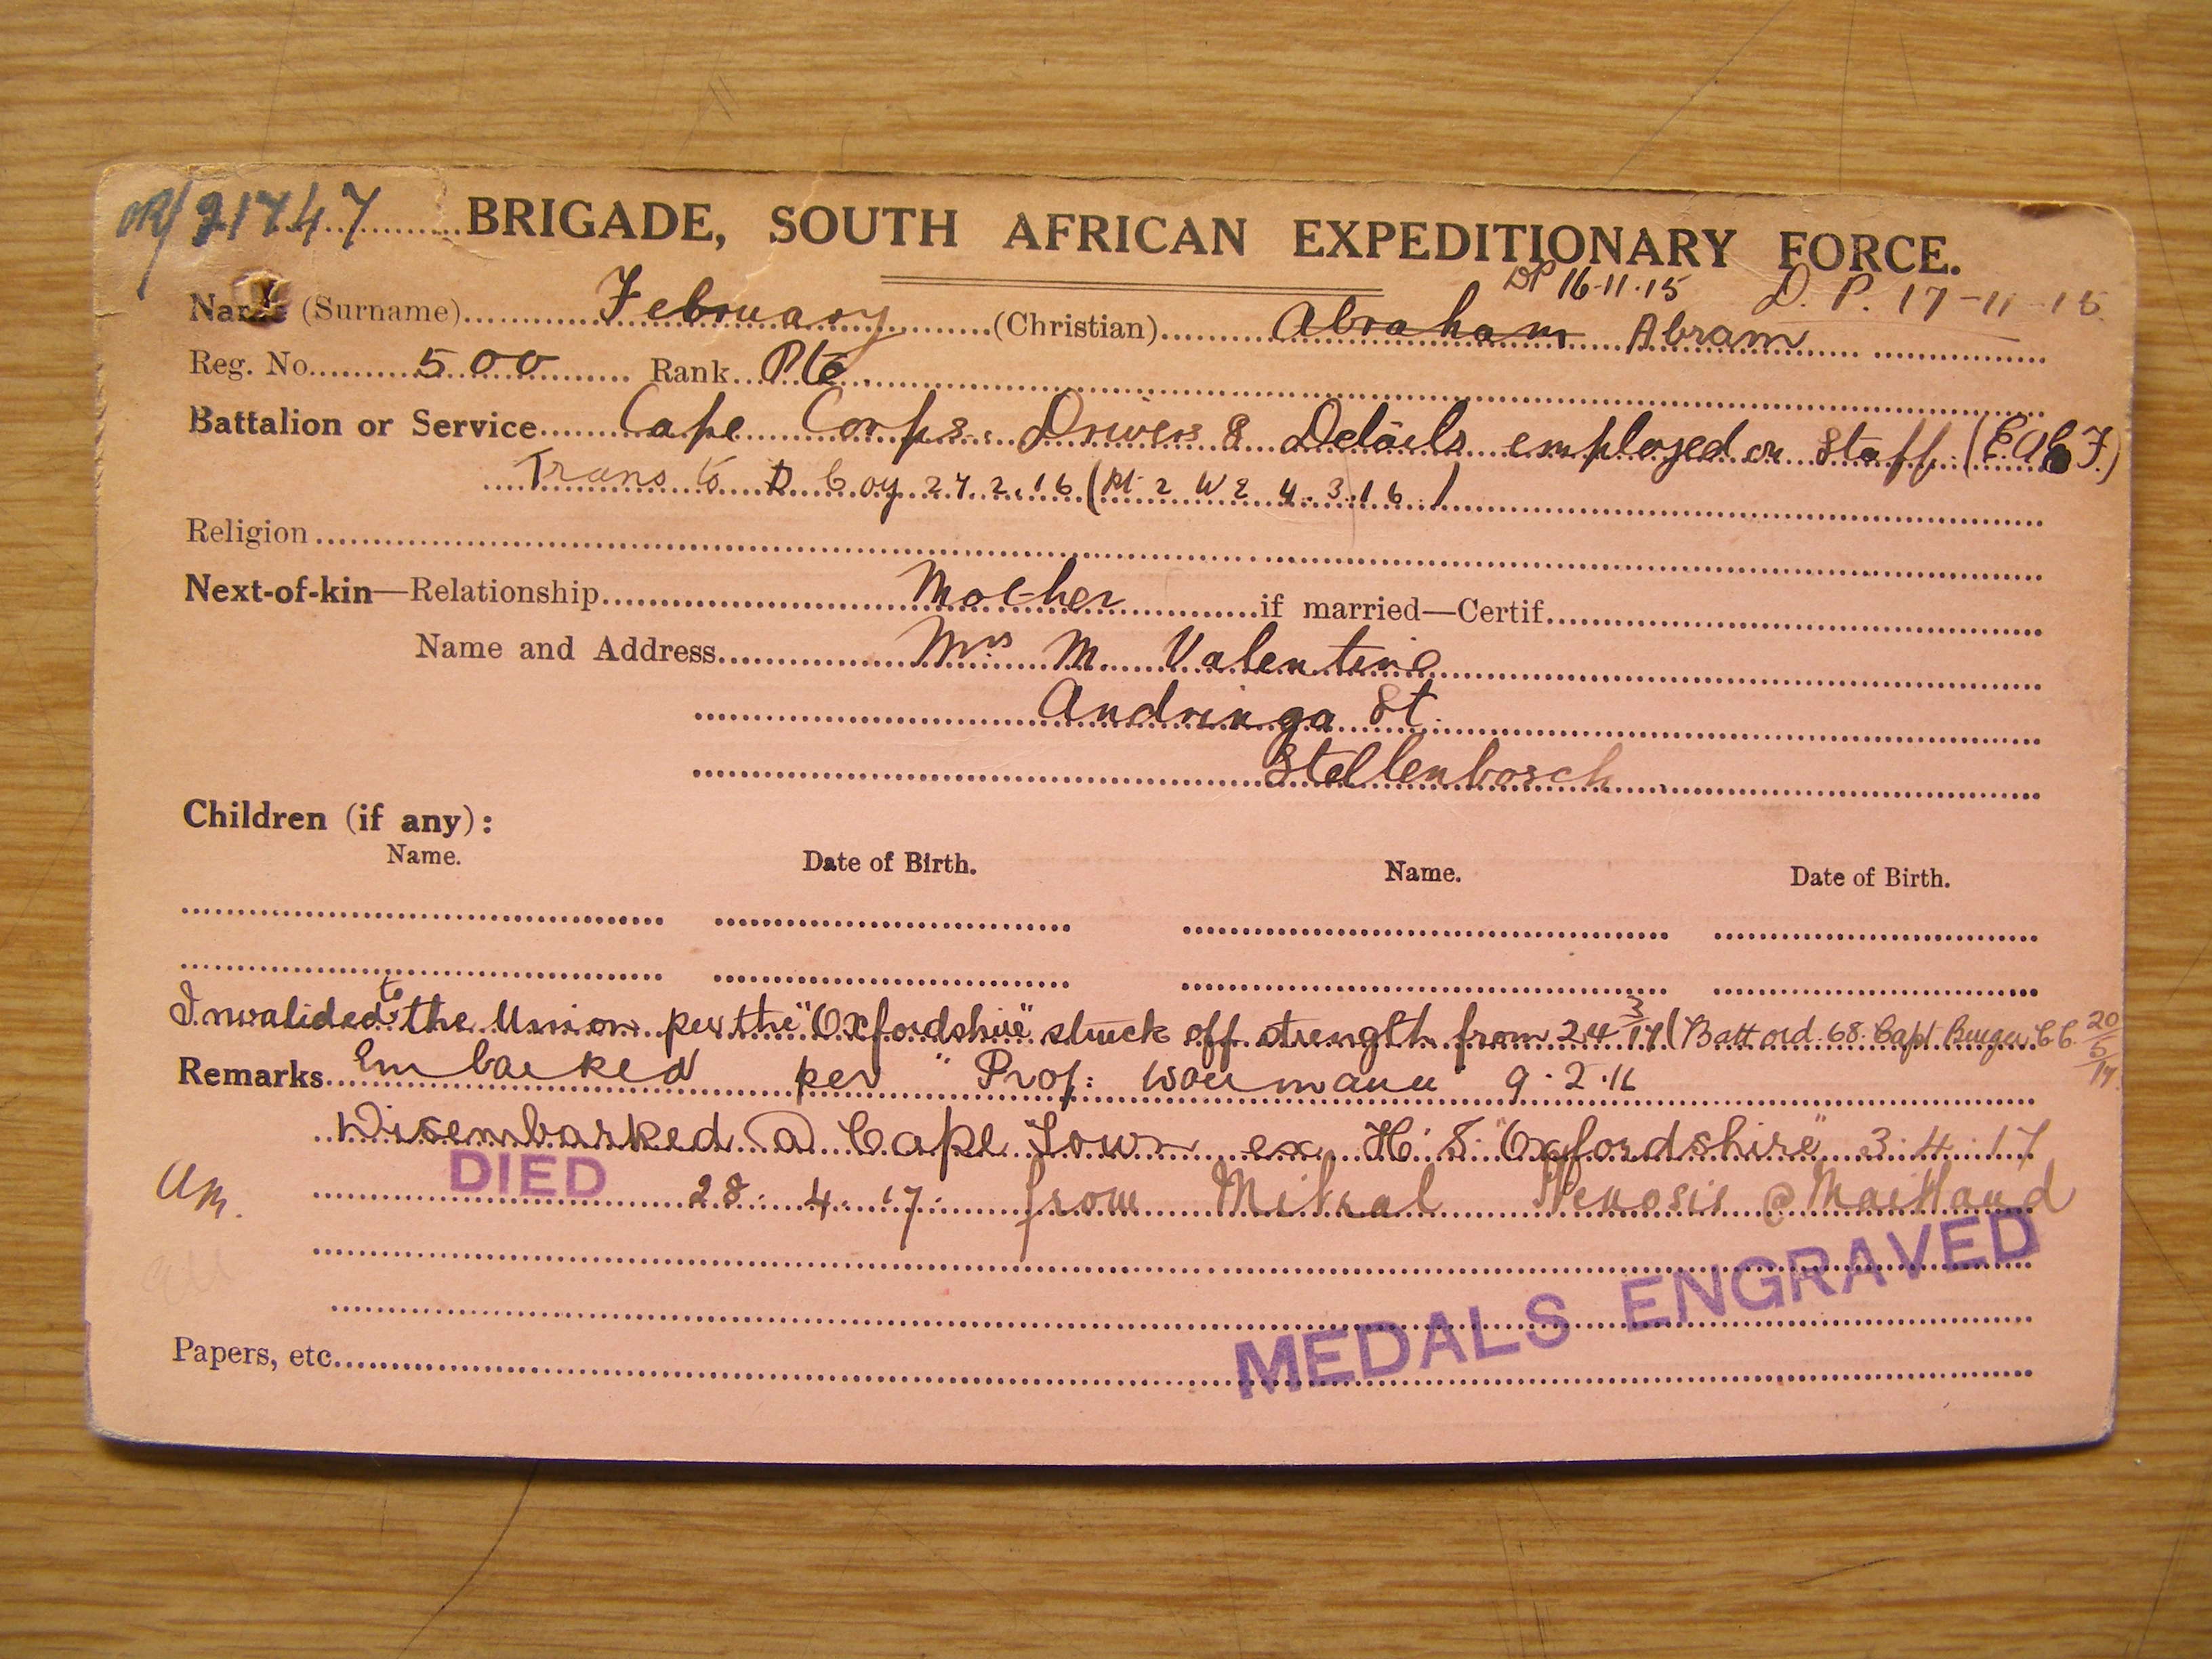 21747 BRIGADE, SOUTH AFRICAN EXPEDITIONARY FORCE.
DP 16-11-15 D. P. 17-11-15
Name (Surname) February (Christian) Abraham Abram
Reg. No. 500 Rank Pte.
Battalion or Service Cape Corps. Drivers & Details employed on Staff. (E.A.E.F.)
Trans to D Coy 27.2.16 (Pt 2 W2 4.3.16.)
Religion
Next-of-kin—Relationship Mother if married—Certif.
Name and Address Mrs M. Valentine
Andringa St.
Stellenbosch
Children (if any):
Name. Date of Birth. Name. Date of Birth.
Invalided to the Union per the "Oxfordshire" struck off strength from 24 3/17 (Batt ord. 68. Capt Burger C.C. 20/5/17.
Remarks Embarked per "Prof: Woermann" 9.2.16
Disembarked @ Cape Town ex H.S. "Oxfordshire" 3.4.17
DIED 28.4.17. from Mitral Stenosis @ Maitland
MEDALS ENGRAVED
Papers, etc.